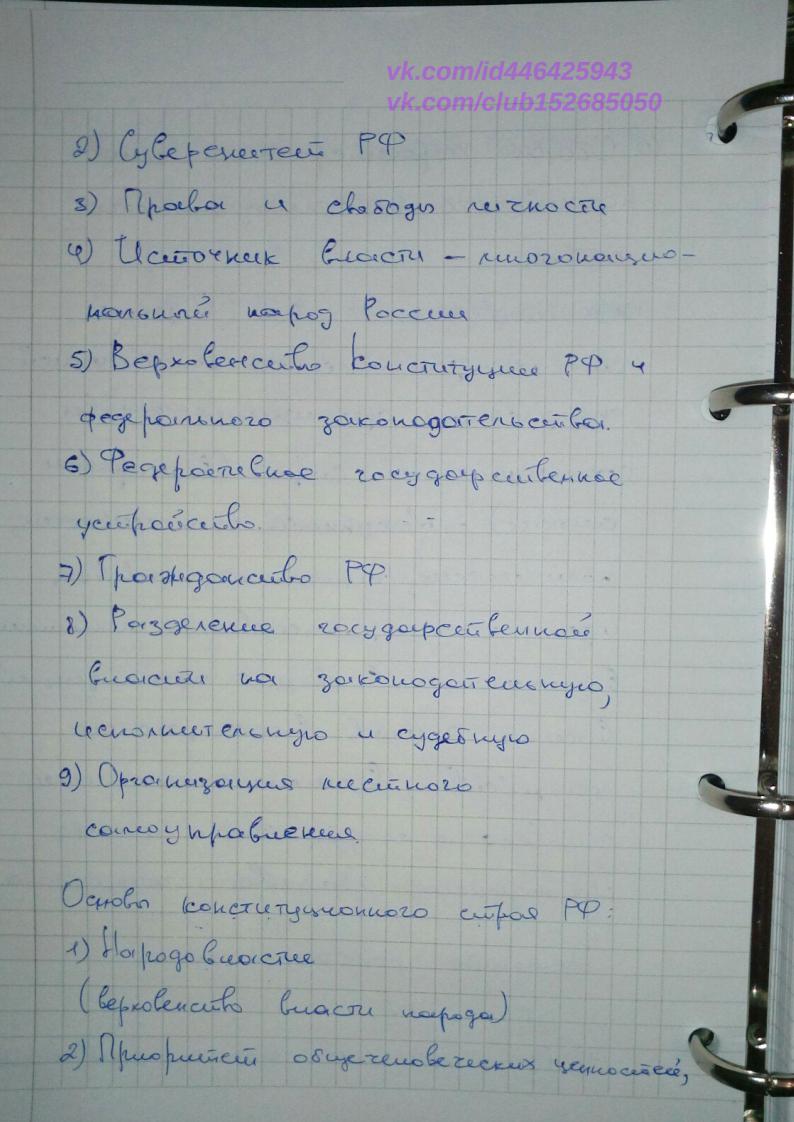 vk.com/id446425943
vk.com/club152685050
2) Суверенитет РФ
3) Права и свободы личности
4) Источник власти – многонацио-
нальный народ России
5) Верховенство Конституции РФ и
федерального законодательства.
6) Федеративное государственное
устройство.
7) Гражданство РФ
8) Разделение государственной
власти на законодательную,
исполнительную и судебную
9) Организация местного
самоуправления.
Основы конституционного строя РФ:
1) Народовластие
(верховенство власти народа)
2) Приоритет общечеловеческих ценностей,